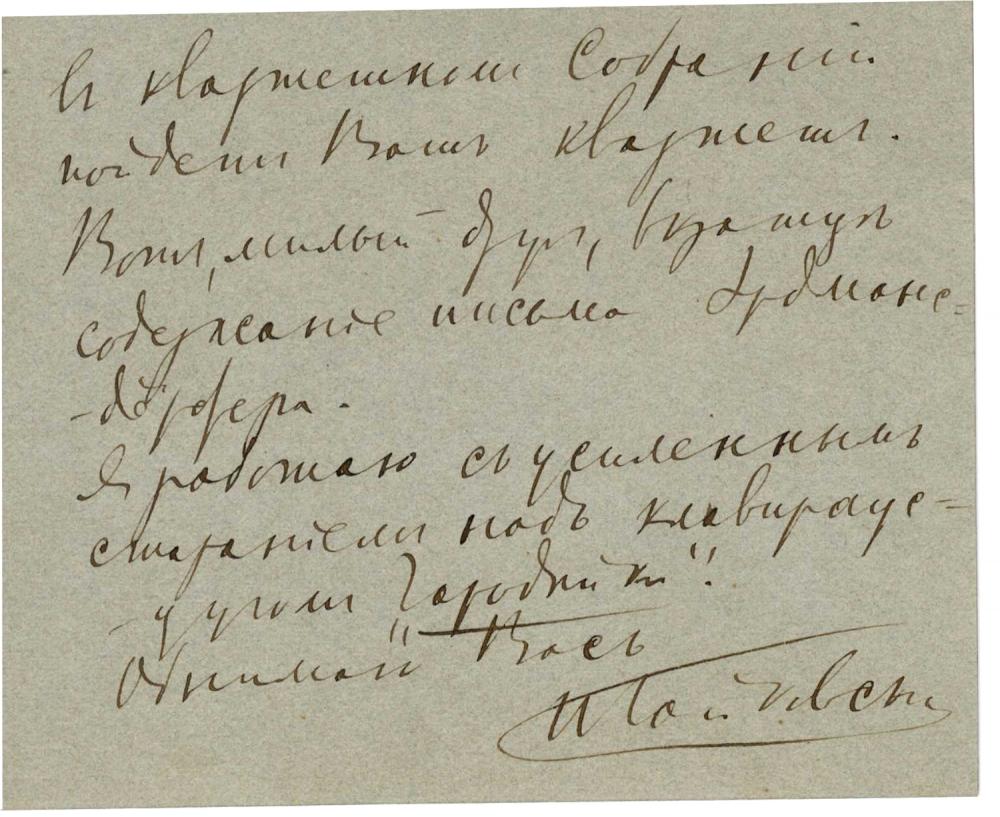 въ квартетномъ Собраніи
пойдетъ Вашъ квартетъ.
Вотъ, милый другъ, вкратцѣ
содержаніе письма Эрдманс=
-дёрфера.
Я работаю съ усиленнымъ
стараніемъ надъ клавираус=
-цугомъ „Чародѣйки".
Обнимаю Васъ
П Чайковскій